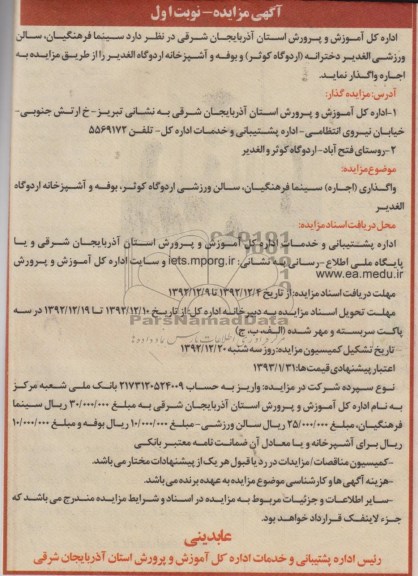 آگهی مزایده - نوبت اول
اداره کل آموزش و پرورش استان آذربایجان شرقی در نظر دارد سینما فرهنگیان، سالن
ورزشی الغدیر دخترانه (اردوگاه کوثر) و بوفه و آشپزخانه اردوگاه الغدیر را از طریق مزایده به
اجاره واگذار نماید.
آدرس: مزایده گذار:
۱-اداره کل آموزش و پرورش استان آذربایجان شرقی به نشانی تبریز- خ ارتش جنوبی-
خیابان نیروی انتظامی- اداره پشتیبانی و خدمات اداره کل- تلفن ۵۵۶۹۱۷۲
۲-روستای فتح آباد- اردوگاه کوثر و الغدیر
موضوع مزایده:
واگذاری (اجاره) سینما فرهنگیان، سالن ورزشی اردوگاه کوثر، بوفه و آشپزخانه اردوگاه
الغدیر
محل دریافت اسناد مزایده:
اداره پشتیبانی و خدمات اداره کل آموزش و پرورش استان آذربایجان شرقی و یا
پایگاه ملی اطلاع -رسانی به نشانی: iets.mporg.ir و سایت اداره کل آموزش و پرورش
www.ea.medu.ir
مهلت دریافت اسناد مزایده: از تاریخ ۱۳۹۲/۱۲/۴ تا ۱۳۹۲/۱۲/۹
مهلت تحویل اسناد مزایده به دبیرخانه اداره کل: از تاریخ ۱۳۹۲/۱۲/۱۰ تا ۱۳۹۲/۱۲/۱۹ در سه
پاکت سربسته و مهر شده (الف، ب، ج)
تاریخ تشکیل کمیسیون مزایده: روز سه شنبه ۱۳۹۲/۱۲/۲۰
اعتبار پیشنهادی قیمت‌ها: ۱۳۹۳/۱/۳۱
نوع سپرده شرکت در مزایده: واریز به حساب ۲۱۷۳۱۲۰۵۲۴۰۰۹ بانک ملی شعبه مرکز
به نام اداره کل آموزش و پرورش استان آذربایجان شرقی به مبلغ ۳۰/۰۰۰/۰۰۰ ریال سینما
فرهنگیان، مبلغ ۲۵/۰۰۰/۰۰۰ ریال سالن ورزشی- مبلغ ۱۰/۰۰۰/۰۰۰ ریال بوفه و مبلغ ۱۰/۰۰۰/۰۰۰
ریال برای آشپزخانه و یا معادل آن ضمانت نامه معتبر بانکی
-کمیسیون مناقصات/مزایدات در رد یا قبول هر یک از پیشنهادات مختار می باشد.
-هزینه آگهی ها و کارشناسی موضوع مزایده به عهده برنده می باشد.
-سایر اطلاعات و جزئیات مربوط به مزایده در اسناد و شرایط مزایده مندرج می باشد که
جزء لاینفک قرارداد خواهد بود.
عابدینی
رئیس اداره پشتیبانی و خدمات اداره کل آموزش و پرورش استان آذربایجان شرقی
ParsNamadData